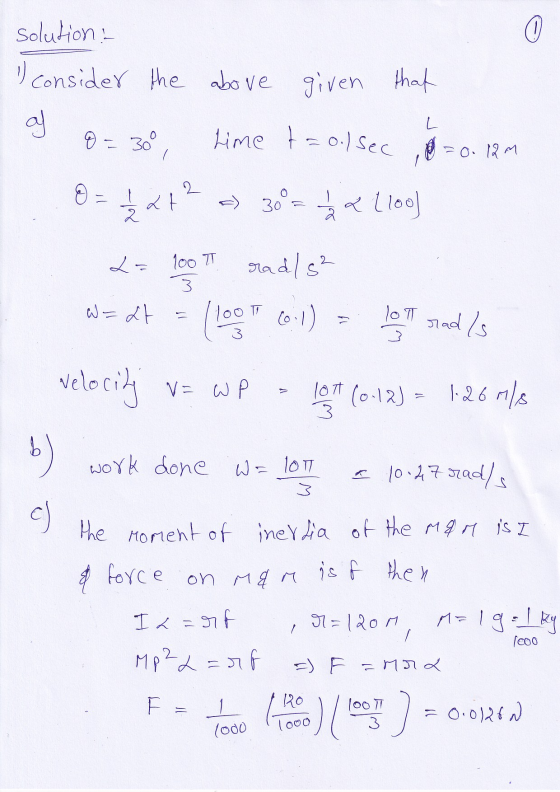 Solution :-
①
1) consider the above given that
a) θ = 30°, time t = 0.1 sec, L = 0.12 M
θ = 1/2 αt² ⇒ 30° = 1/2 α (100)
α = 100π/3 rad/s²
ω = αt = (100π/3 (0.1) = 10π/3 rad/s
velocity V = ωP = 10π/3 (0.12) = 1.26 M/s
b) work done W = 10π/3 = 10.47 rad/s
c) the moment of inertia of the M&M is I
& force on M&M is f then
Iα = rf , r = 120 M, M = 1 g = 1/1000 kg
MP²α = rf ⇒ F = Mrα
F = 1/1000 (120/1000) (100π/3) = 0.0126 N